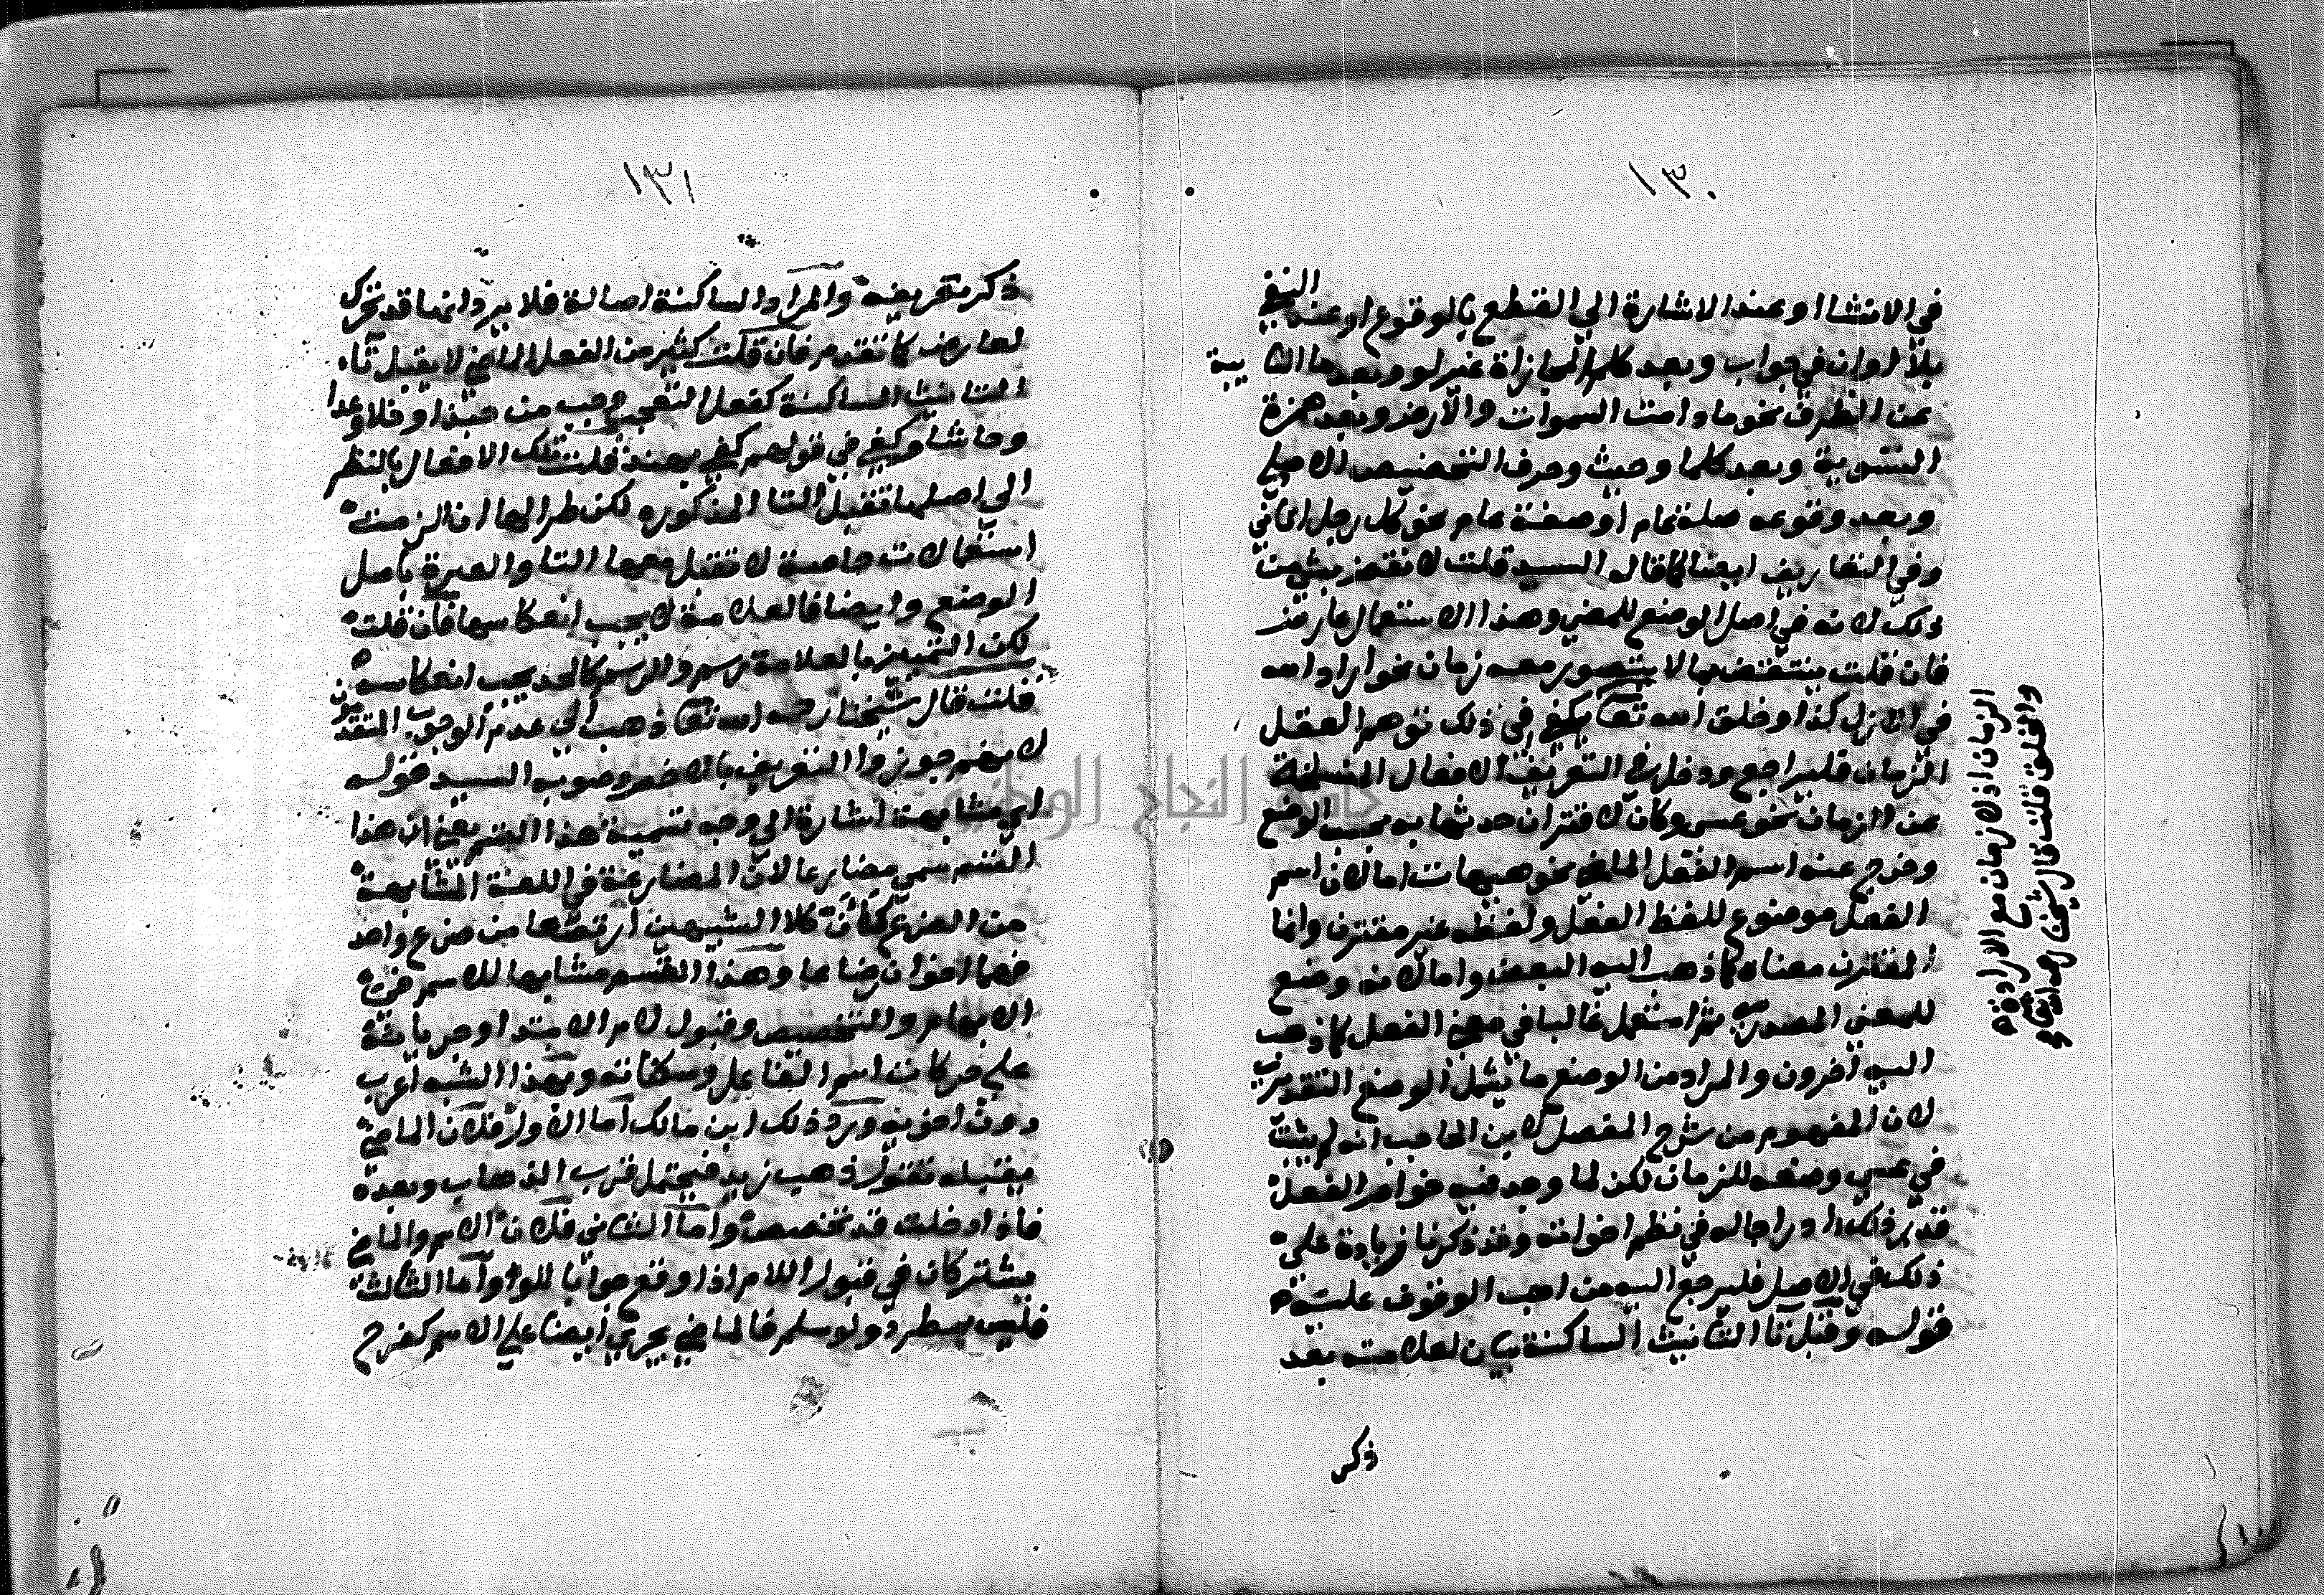 ١٣٠
في الانشا او عند الاشارة الي القطع بالوقوع او عند النفي
بلا او ان في جواب وبعد كلم المجازاة غير لو وبعد ما النائبة
عن الظرف نحو ما دامت السموات والارض وبعد همزة
التسوية وبعد كلما وحيث وحرف التخضيض الاصلي
وبعد وقوعه صلة عام او صفة عام نحو كل رجل اتاني
وفي التعاريف ايضا كما قاله السيد قلت لا نقض بشي من
ذلك لانه في اصل الوضع للمضي وهذا الاستعمال عارض
فان قلت ينتقض بما لا يتصور معه زمان نحو اراد الله
في الازل كذا وخلق الله تعا يكفي في ذلك توهم العقل
الزمان فليراجع ودخل في التعريف الافعال المنسلخة
عن الزمان نحو عسى وكان لاقتران حدثها به بحسب الوضع
وخرج عنه اسم الفعل الماضي نحو هيهات اما لان اسم
الفعل موضوع للفظ الفعل ولفظه غير مقترن وانما
المقترن معناه كما ذهب اليه البعض واما لانه وضع
للمعني المصدري ثم استعمل غالبا في معني الفعل كما ذهب
اليه اخرون والمراد من الوضع ما يشمل الوضع التقديري
لان المفهوم من شرح المفصل لابن الحاجب انه لم يثبت
في عسي وضعه للزمان لكن لما وجد فيه خواص الفعل
قدر ذلك ادراجا له في نظم اخواته وقد ذكرنا زيادة علي
ذلك في الاصل فليرجع اليه من احب الوقوف عليه
قوله وقبل تا التانيث الساكنة بيان لعلامته بعد
ذكر
الزمان اذ لا زمان مع الارادة
والخلق قلت قال شيخنا رحمه الله تعالي
١٣١
ذكر تعريفه والمراد الساكنة اصالة فلا يرد انها قد تحرك
لعارض كما تقدم فان قلت كثير من الفعل الماضي لا يقبل تاء
التانيث الساكنة كفعل التعجب وحب من حبذا وخلا وعدا
وحاشا وكفي في قولهم كفي بهند قلت تلك الافعال بالنظر
الي اصلها تقبل التا المذكوره لكن طرا لها ان الزمت
استعمالات خاصة لا تقبل معها التا والعبرة باصل
الوضع وايضا فالعلامة لا يجب انعكاسها فان قلت
لكن التمييز بالعلامة رسم والرسم كالحد يجب انعكاسه
قلت قال شيخنا رحمه الله تعا ذهب الي عدم الوجوب المتقدمون
لانهم جوزوا التعريف بالاخص وصوبه السيد قوله
اي مشابهة اشارة الي وجه تسمية هذا القسم يعني ان هذا
القسم سمي مضارعا لان المضارعة في اللغة المشابهة
من الضرع كان كلا الشبيهين ارتضعا من ضرع واحد
فهما اخوان رضاعا وهذا القسم مشابها للاسم في
الابهام والتخصيص وقبول لام الابتدا وجريانه
علي حركات اسم الفاعل وسكناته وبهذا الشبه اعرب
دون اخويه ورد ذلك ابن مالك اما الاول فلان الماضي
يقبله تقول ذهب زيد فيحتمل قرب الذهاب وبعده
فاذا دخلت قد تخصص واما الثاني فلان الاسم والماضي
يشتركان في قبول اللام اذا وقع جوابا للو واما الثالث
فليس بمطرد ولو سلم فالماضي يجري ايضا علي الاسم كفرح
جامعة النجاح الوطنية